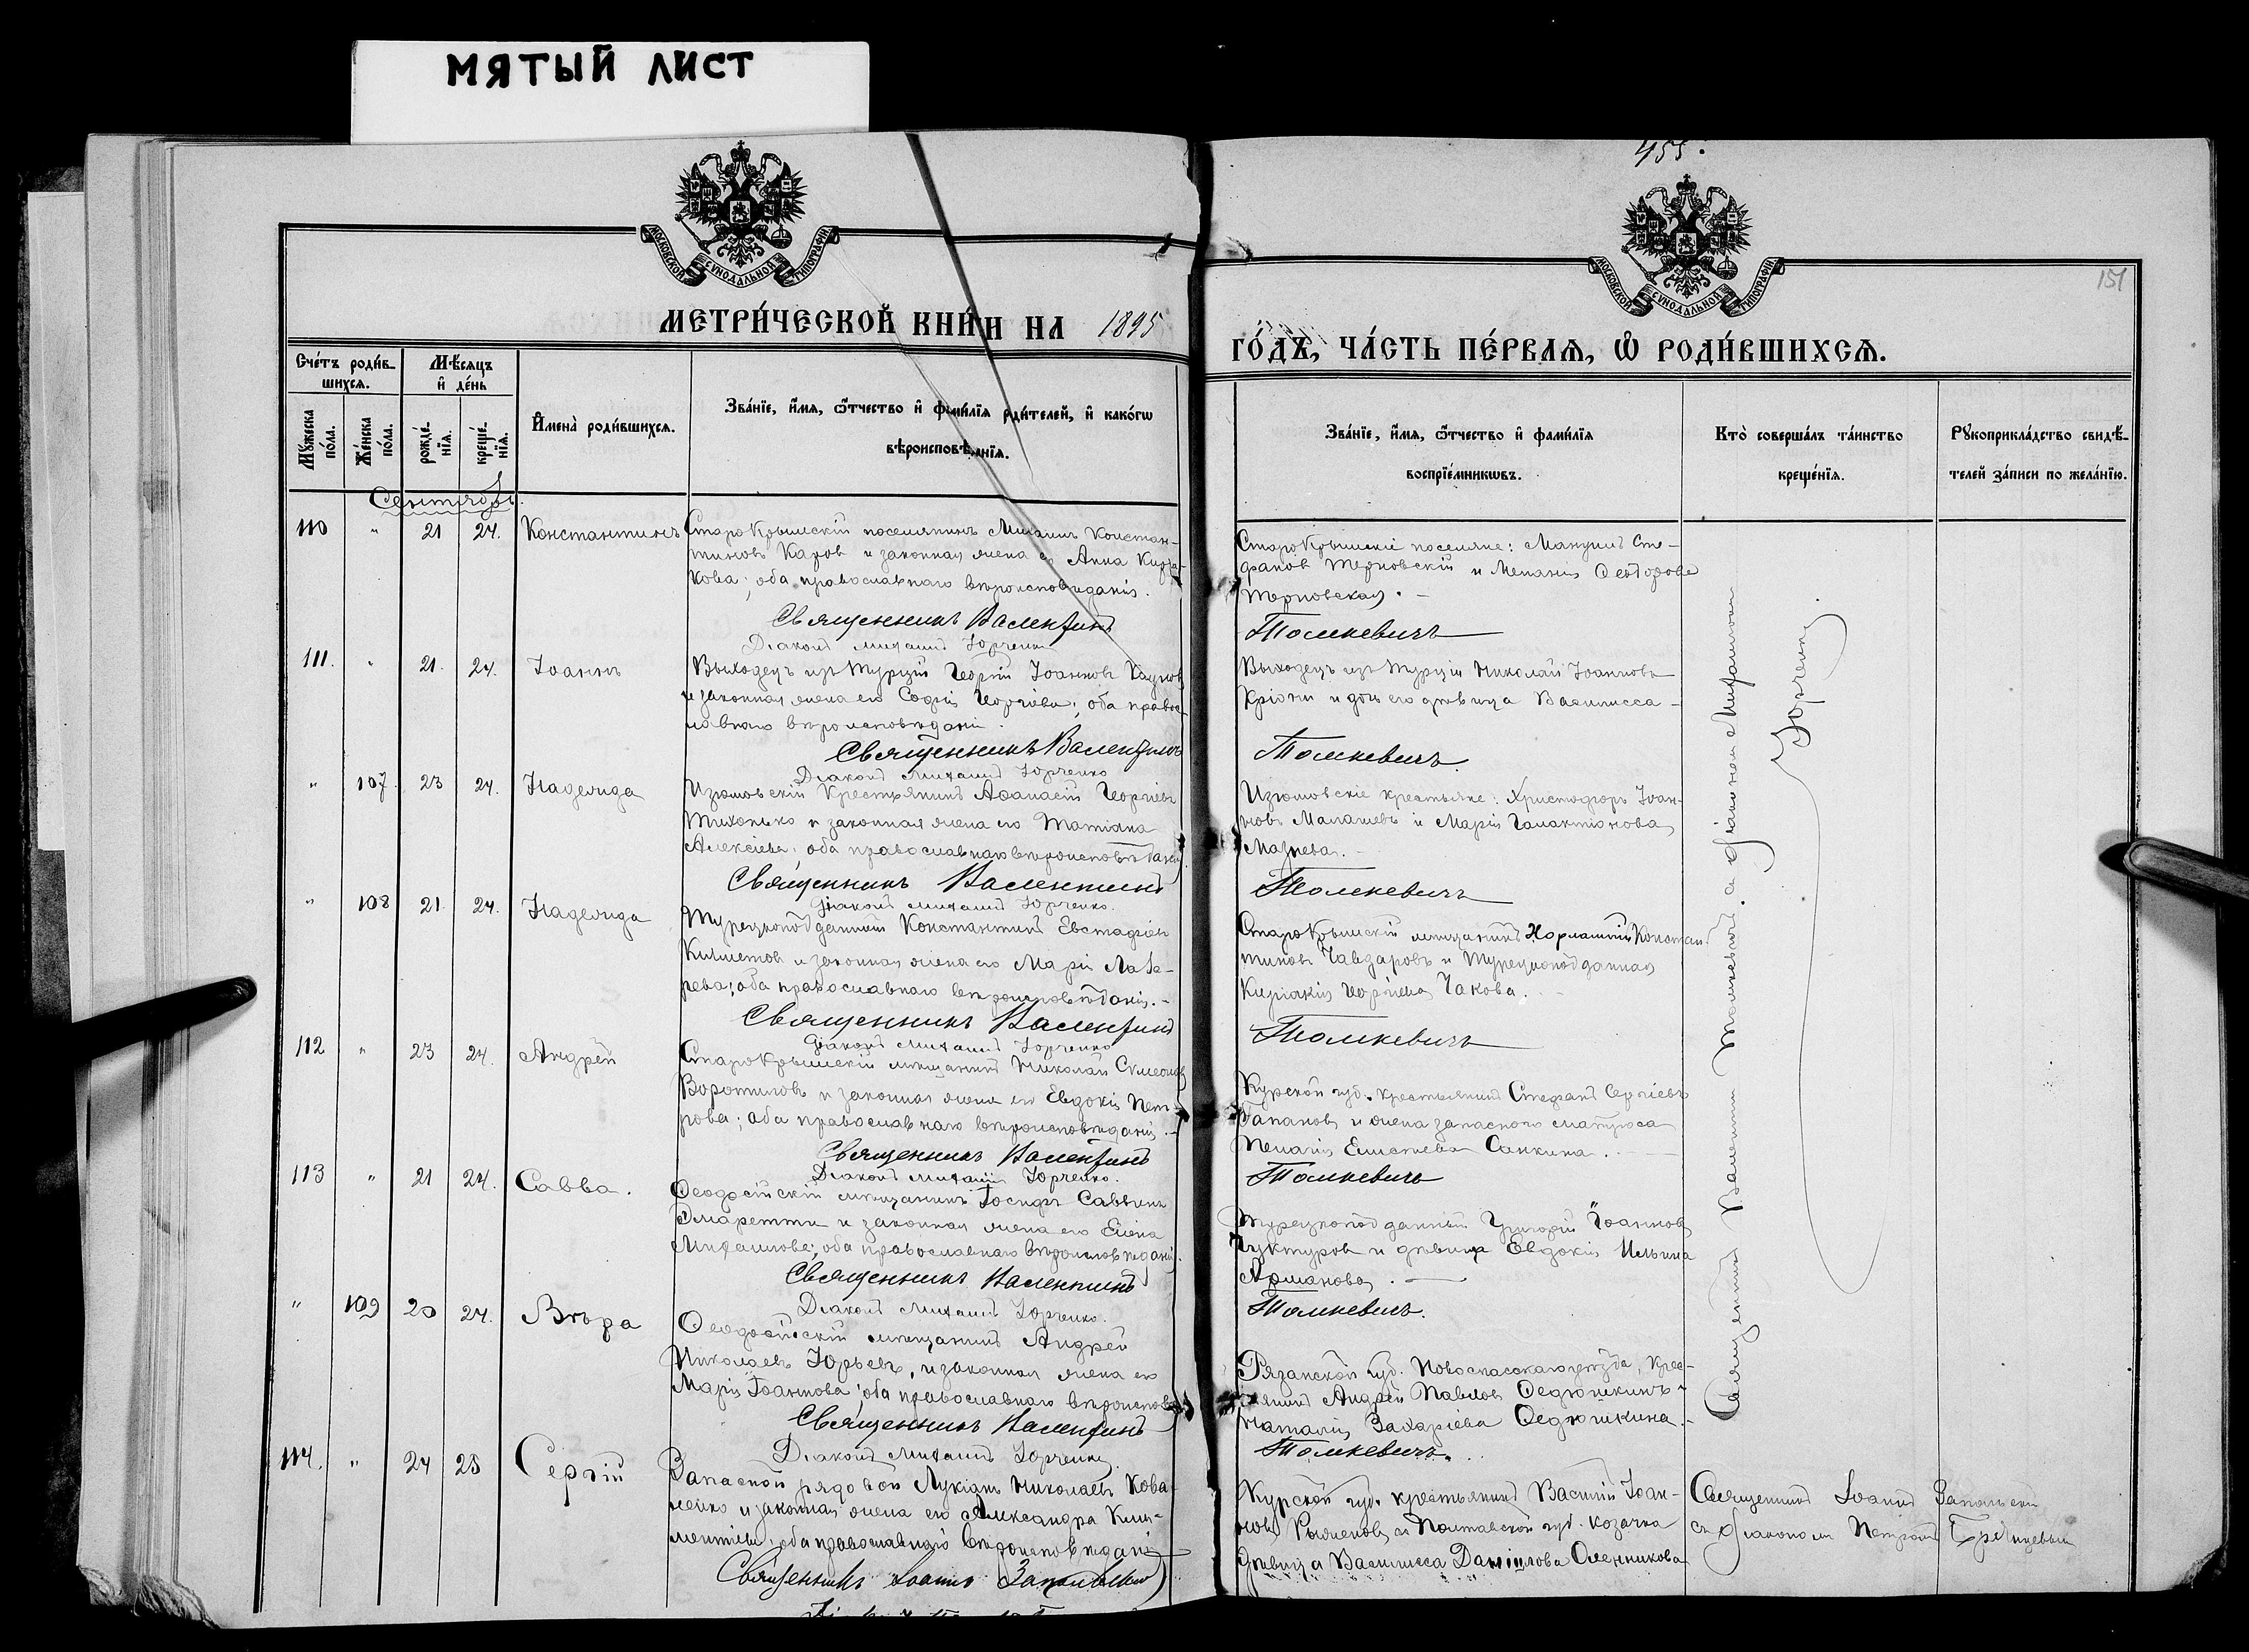 МЯТЫЙ ЛИСТ
455.
151
МОСКОВСКОЙ СѴНОДАЛЬНОЙ ТИПОГРАФІИ
МОСКОВСКОЙ СѴНОДАЛЬНОЙ ТИПОГРАФІИ
МЕТРИ́ЧЕСКОЙ КНИ́ГИ НА 1895
ГО́ДЪ, ЧА́СТЬ ПЕ́РВАЯ, Ѡ РОДИ́ВШИХСЯ.
Сче́тъ роди́в-
шихся.
Мѣ́сяцъ
и де́нь
Му́жеска по́ла.
Же́нска по́ла.
рожде́-нія.
креще́-нія.
Имена̀ роди́вшихся.
Зва́нїе, и́мя, ѿтчество и фами́лїя роди́телей, и како́гѡ
вѣроисповѣ́данїя.
Зва́нїе, и́мя, ѿтчество и фами́лїя
воспрїе́мникѡвъ.
Кто̀ соверша́лъ та́инство
креще́нїя.
Рꙋкоприкла́дство свидѣ́-
телей за́писи по жела́нїю.
Сентябрь.
110 " 21 24. Константинъ
Старокрымскій поселянинъ Михаилъ Констан-
тиновъ Каров и законная жена его Анна Кирья-
кова; оба православнаго вѣроисповѣданія.
Священникъ Валентинъ
Діаконъ Михаилъ Юрченко
Старокрымскіе поселяне: Мануилъ Сте-
фановъ Терновскій и Меланія Ѳеодорова
Терновская. —
Томкевичъ
111. " 21. 24. Іоаннъ
Выходецъ изъ Турціи Георгій Іоанновъ
и законная жена его Софія Георгіева; оба правос-
лавнаго вѣроисповѣданія.
Священникъ Валентинъ
Діаконъ Михаилъ Юрченко
Выходецъ изъ Турціи Николай Іоанновъ
и дочь его дѣвица Василисса —
Томкевичъ.
" 107. 23 24. Надежда
Изюмовскій крестьянинъ Аѳанасій Георгіевъ
Тихонько и законная жена его Татіана
Алексіева; оба православнаго вѣроисповѣданія.
Священникъ Валентинъ
Діаконъ Михаилъ Юрченко.
Изюмовскіе крестьяне: Христофоръ Іоан-
новъ Малашевъ и Марія Галактіонова
Мазнева. —
Томкевичъ
" 108 21. 24. Надежда
Турецкоподданный Константинъ Евстафіевъ
и законная жена его Марія Лаза-
рева; оба православнаго вѣроисповѣданія. —
Священникъ Валентинъ
Діаконъ Михаилъ Юрченко
Старокрымскій мѣщанинъ Харлампій Констан-
тиновъ Чавдаровъ и Турецкоподданная
Киріакія Георгіева Чакова. —
Томкевичъ
112 " 23 24. Андрей
Старокрымскій мѣщанинъ Николай Симеоновъ
Воротиловъ и законная жена его Евдокія Пет-
рова; оба православнаго вѣроисповѣданія. —
Священникъ Валентинъ
Діаконъ Михаилъ Юрченко.
Курской губ. крестьянинъ Стефанъ Сергіевъ
и жена запаснаго матроса
Пелагія Елисеева Санкина. —
Томкевичъ
113 " 21 24. Савва.
Ѳеодосійскій мѣщанинъ Іосифъ Саввинъ
и законная жена его Елена
Михаилова; оба православнаго вѣроисповѣданія.
Священникъ Валентинъ
Діаконъ Михаилъ Юрченко.
Турецкоподданный Григорій Іоанновъ
и дѣвица Евдокія Ильина
Томкевичъ.
" 109 20 24. Вѣра
Ѳеодосійскій мѣщанинъ Андрей
Николаевъ Юрьевъ, и законная жена его
Марія Іоаннова; оба православнаго вѣроисповѣд.
Священникъ Валентинъ
Діаконъ Михаилъ Юрченко.
Рязанской губ. Новоспасскаго уѣзда, крес-
тьянинъ Андрей Павловъ Ѳедюшкинъ и
Наталія Захаріева Ѳедюшкина. —
Томкевичъ.
114. " 24 25 Сергій
Запасной рядовой Лукіанъ Николаевъ Кова-
ленко и законная жена его Александра Кли-
ментіева; оба православнаго вѣроисповѣданія
Священникъ Іоаннъ Запольскій
Курской губ. крестьянинъ Василій Іоан-
новъ Рыженковъ и Полтавской губ. козачка
дѣвица Василисса Даніилова Олейникова
Священникъ Валентинъ Томкевичъ съ діакономъ Михаиломъ
Юрченко.
Священникъ Іоаннъ Запольскій
съ діакономъ Петромъ